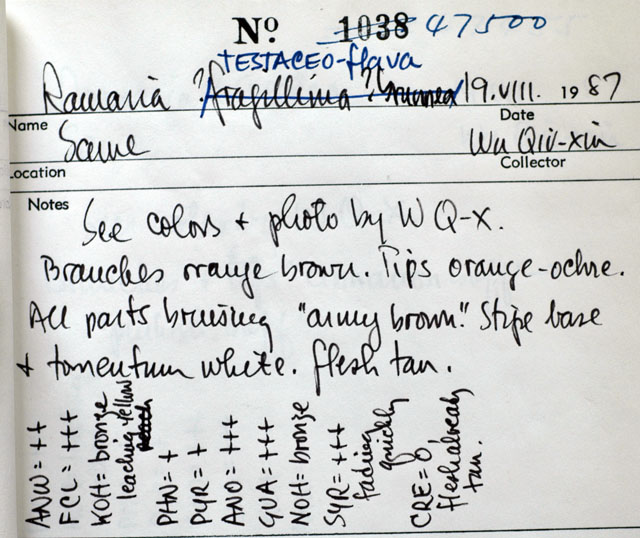 Nº 1038 47500
TESTACEO-flava
Ramaria ?fragillima ? 19.VIII. 1987
Name Date
Same Wu Qiu-xin
Location Collector
Notes See colors + photo by W Q-X.
Branches orange brown. Tips orange-ochre.
All parts bruising "army brown." Stipe base
+ tomentum white. flesh tan.
ANW = ++
FCL = +++
KOH = bronze
leaching yellow
PHN = +
PYR = +
ANO = +++
GUA = +++
NOH = bronze
SYR = +++
fading
quickly
CRE = 0,
flesh already
tan.